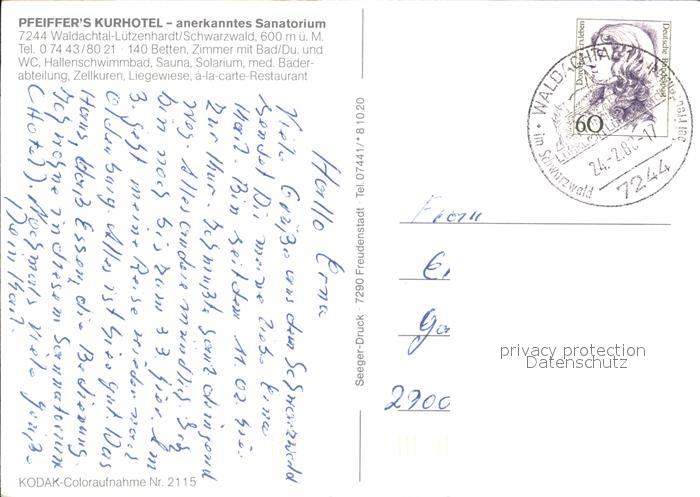 PFEIFFER'S KURHOTEL – anerkanntes Sanatorium
7244 Waldachtal-Lützenhardt/Schwarzwald, 600 m ü. M.
Tel. 0 74 43/80 21 · 140 Betten, Zimmer mit Bad/Du. und
WC, Hallenschwimmbad, Sauna, Solarium, med. Bäder-
abteilung, Zellkuren, Liegewiese, à-la-carte-Restaurant
Hallo Erna
Viele Grüße aus dem Schwarzwald
sendet Dir meine liebe Erna
Karl. Bin seit dem 11.02 hier
zur Kur. ganz dringend
Alles andere mündlich. Ich
bin noch bis zum 3.3 hier. Am
3. geht meine Reise wieder nach
Oldenburg. Alles ist hier gut. Das
Haus, das Essen, die Bedienung.
Ich in diesem Sanatorium
(Hotel). Nochmals viele Grüße
Dein Karl.
KODAK-Coloraufnahme Nr. 2115
Seeger-Druck · 7290 Freudenstadt · Tel. 07441/* 8 10 20
Dorothea Erxleben
Deutsche Bundespost
60
WALDACHTAL
im Schwarzwald
7244
Frau
2900
privacy protection
Datenschutz